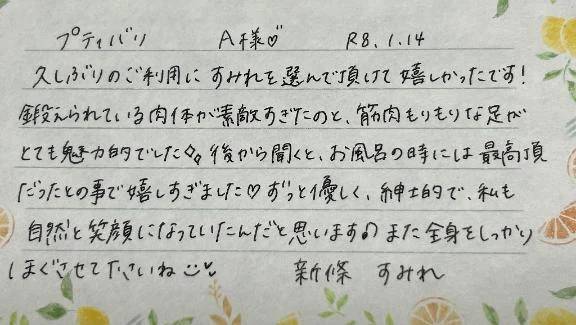 プティバリ A様♡ R8.1.14
久しぶりのご利用に すみれを選んで頂けて嬉しかったです!
鍛えられている肉体が素敵すぎたのと、筋肉もりもりな足が
とても魅力的でした✧ 後から聞くと、お風呂の時には最高頂
だったとの事で嬉しすぎました♡ずっと優しく、紳士的で、私も
自然と笑顔になっていたんだと思います♪また全身をしっかり
ほぐさせて下さいね 新條 すみれ